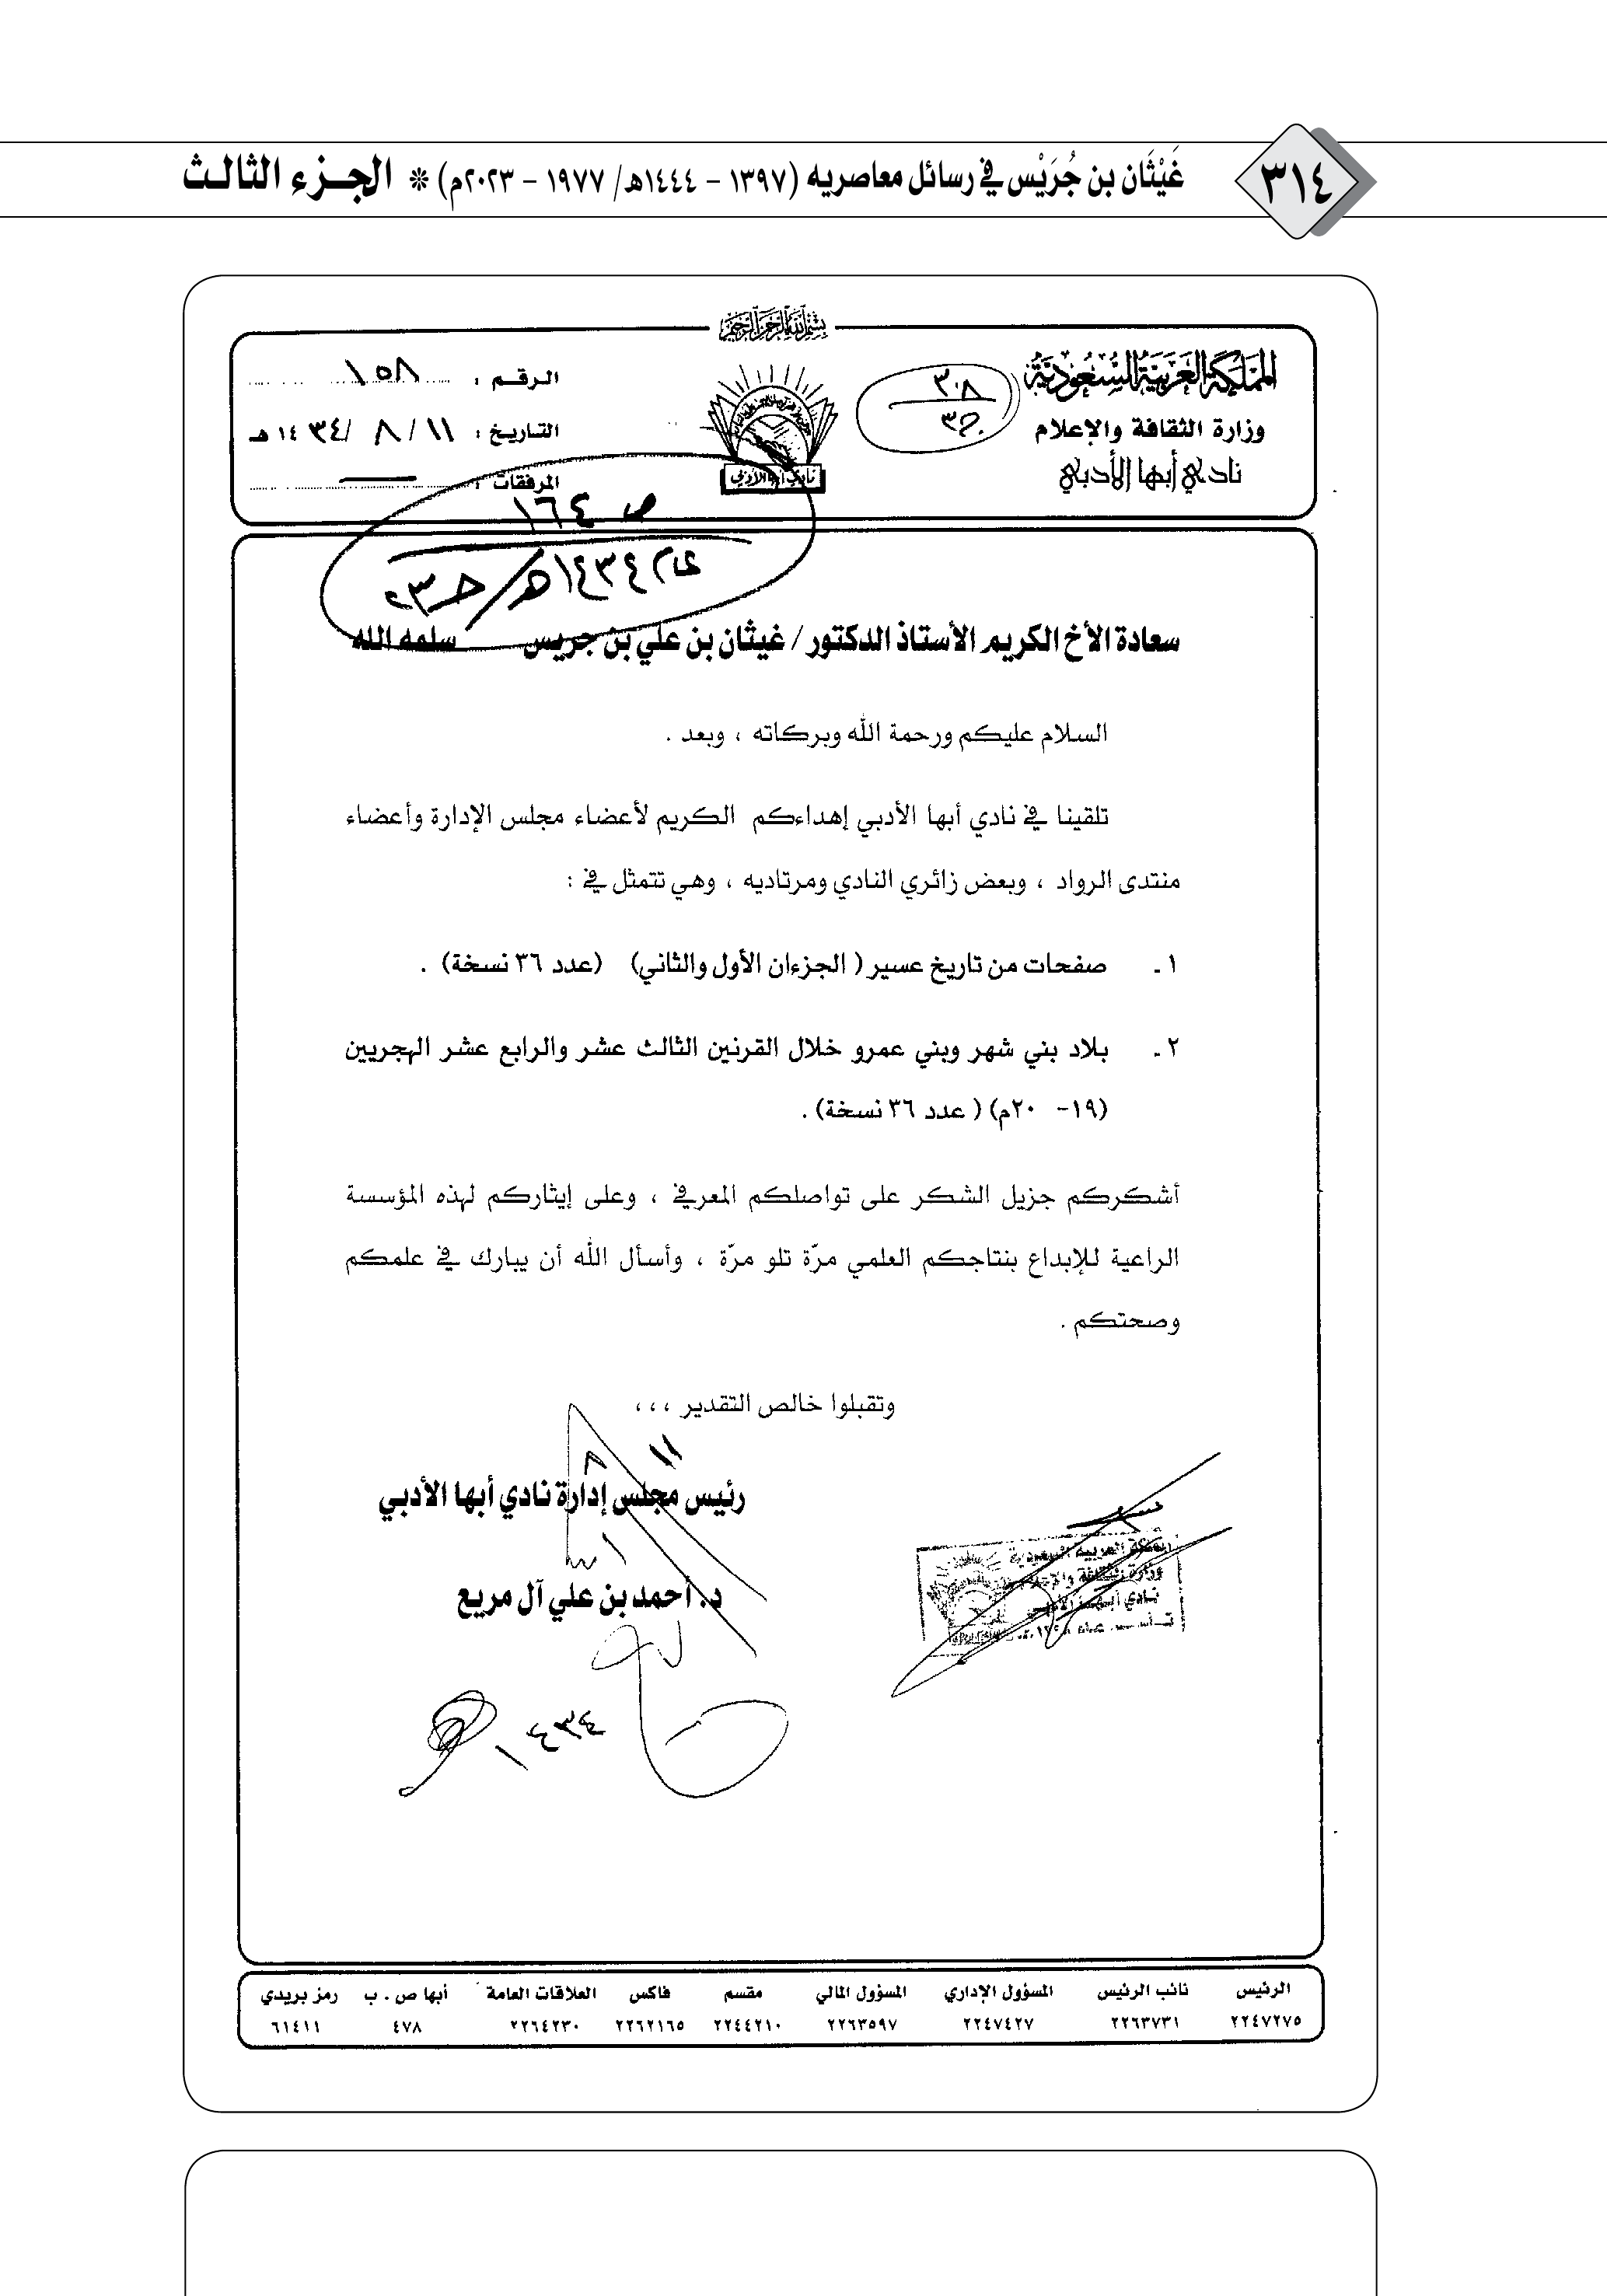 ٣١٤
غَيْثَان بن جُرَيْس في رسائل معاصريه (١٣٩٧ - ١٤٤٤هـ/ ١٩٧٧ - ٢٠٢٣م) * الجزء الثالث
بسم الله الرحمن الرحيم
المملكة العربية السعودية
وزارة الثقافة والإعلام
نادي أبها الأدبي
٣٠٨
نادي أبها الأدبي
الرقم : ١٥٨
التاريخ : ١١ / ٨ / ١٤٣٤ هـ
المرفقات :
ص ١٦٤
عام ١٤٣٤هـ / ج٣
سعادة الأخ الكريم الأستاذ الدكتور / غيثان بن علي بن جريس سلمه الله
السلام عليكم ورحمة الله وبركاته ، وبعد .
تلقينا في نادي أبها الأدبي إهداءكم الكريم لأعضاء مجلس الإدارة وأعضاء
منتدى الرواد ، وبعض زائري النادي ومرتاديه ، وهي تتمثل في :
١ ـ صفحات من تاريخ عسير ( الجزءان الأول والثاني) (عدد ٣٦ نسخة) .
٢ ـ بلاد بني شهر وبني عمرو خلال القرنين الثالث عشر والرابع عشر الهجريين
(١٩- ٢٠م) ( عدد ٣٦ نسخة) .
أشكركم جزيل الشكر على تواصلكم المعرفي ، وعلى إيثاركم لهذه المؤسسة
الراعية للإبداع بنتاجكم العلمي مرّة تلو مرّة ، وأسأل الله أن يبارك في علمكم
وصحتكم .
وتقبلوا خالص التقدير ،،،
١١ / ٨
رئيس مجلس إدارة نادي أبها الأدبي
د. أحمد بن علي آل مريع
١٤٣٤
المملكة العربية السعودية
وزارة الثقافة والإعلام
نادي أبها الأدبي
الرئيس نائب الرئيس المسؤول الإداري المسؤول المالي مقسم فاكس العلاقات العامة أبها ص . ب رمز بريدي
٢٢٤٧٢٧٥ ٢٢٦٣٧٣١ ٢٢٤٧٤٢٧ ٢٢٦٣٥٩٧ ٢٢٤٤٢١٠ ٢٢٦٢١٦٥ ٢٢٦٤٢٣٠ ٤٧٨ ٦١٤١١